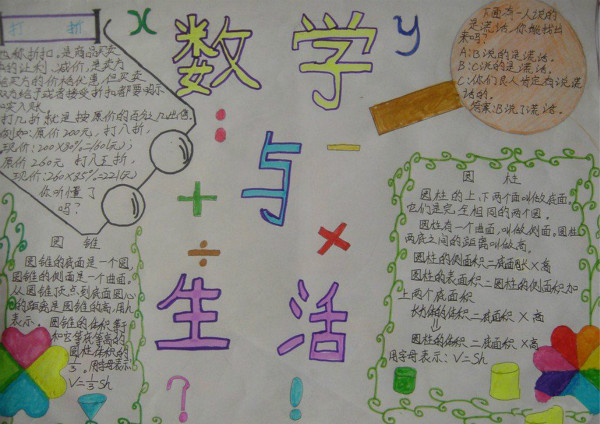 数学
与
生活
x
y
打折
也称折扣,是商品买卖
中的让利、减价,是卖方
给买方的价格优惠,但买卖
双方给予或者接受折扣都要明示
如实入账。
打几折就是按原价的百分之几出售。
例如:原价200元,打八折,
现价:200×80%=160(元);
原价260元 打八五折,
现价:260×85%=221(元)
你听懂了
吗?
下面有一人说的
是谎话,你能找出
来吗?
A:B说的是谎话。
B:C说的是谎话。
C:你们良人肯定有说谎
话的。
答案:B说了谎话。
圆锥
圆锥的底面是一个圆,
圆锥的侧面是一个曲面。
从圆锥顶点到底面圆心
的距离是圆锥的高,用h
表示。圆锥的体积等于
和它等底等高的
圆柱体积的
1/3。用字母表示:
V=1/3Sh
圆柱
圆柱的上、下两个面叫做底面,
它们是完全相同的两个圆。
圆柱有一个曲面,叫做侧面。圆柱
两底之间的距离叫做高。
圆柱的侧面积=底面周长×高
圆柱的表面积=圆柱的侧面积加
上两个底面积
长方体的体积=底面积×高
⇓
圆柱的体积=底面积×高
用字母表示:V=Sh